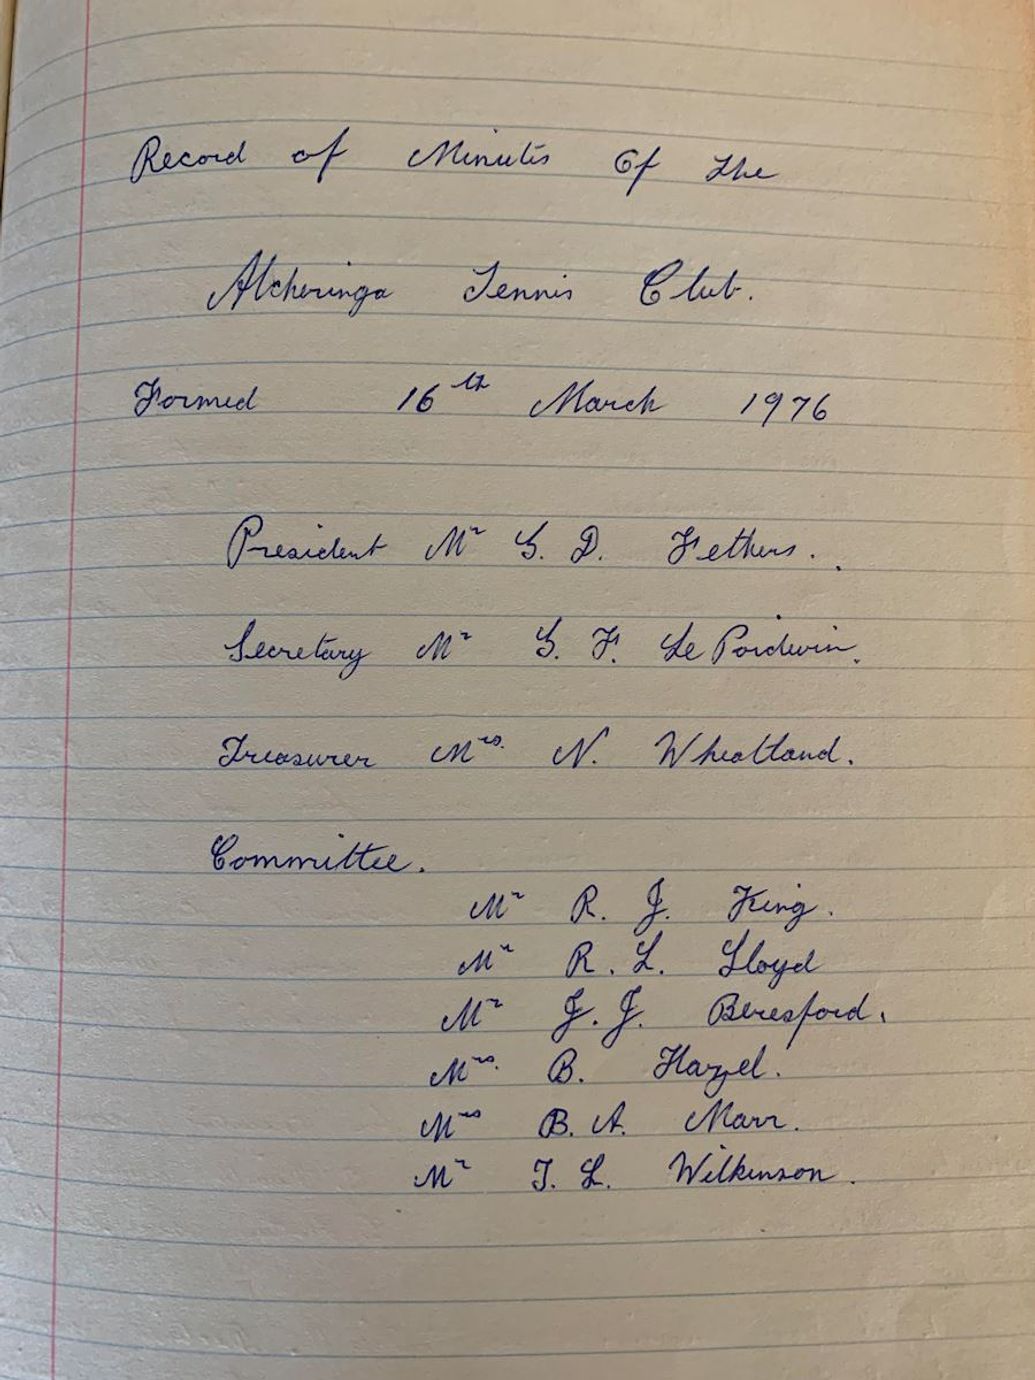 Record of Minutes Of the
Alcheringa Tennis Club.
Formed 16th March 1976
President Mr G. D. Fethers.
Secretary Mr G. F. Le Poidevin.
Treasurer Mrs. N. Wheatland.
Committee.
Mr R. J. King.
Mr R. L. Lloyd
Mr J. J. Beresford.
Mrs. B. Hazel.
Mrs B. A. Marr.
Mr T. L. Wilkinson.